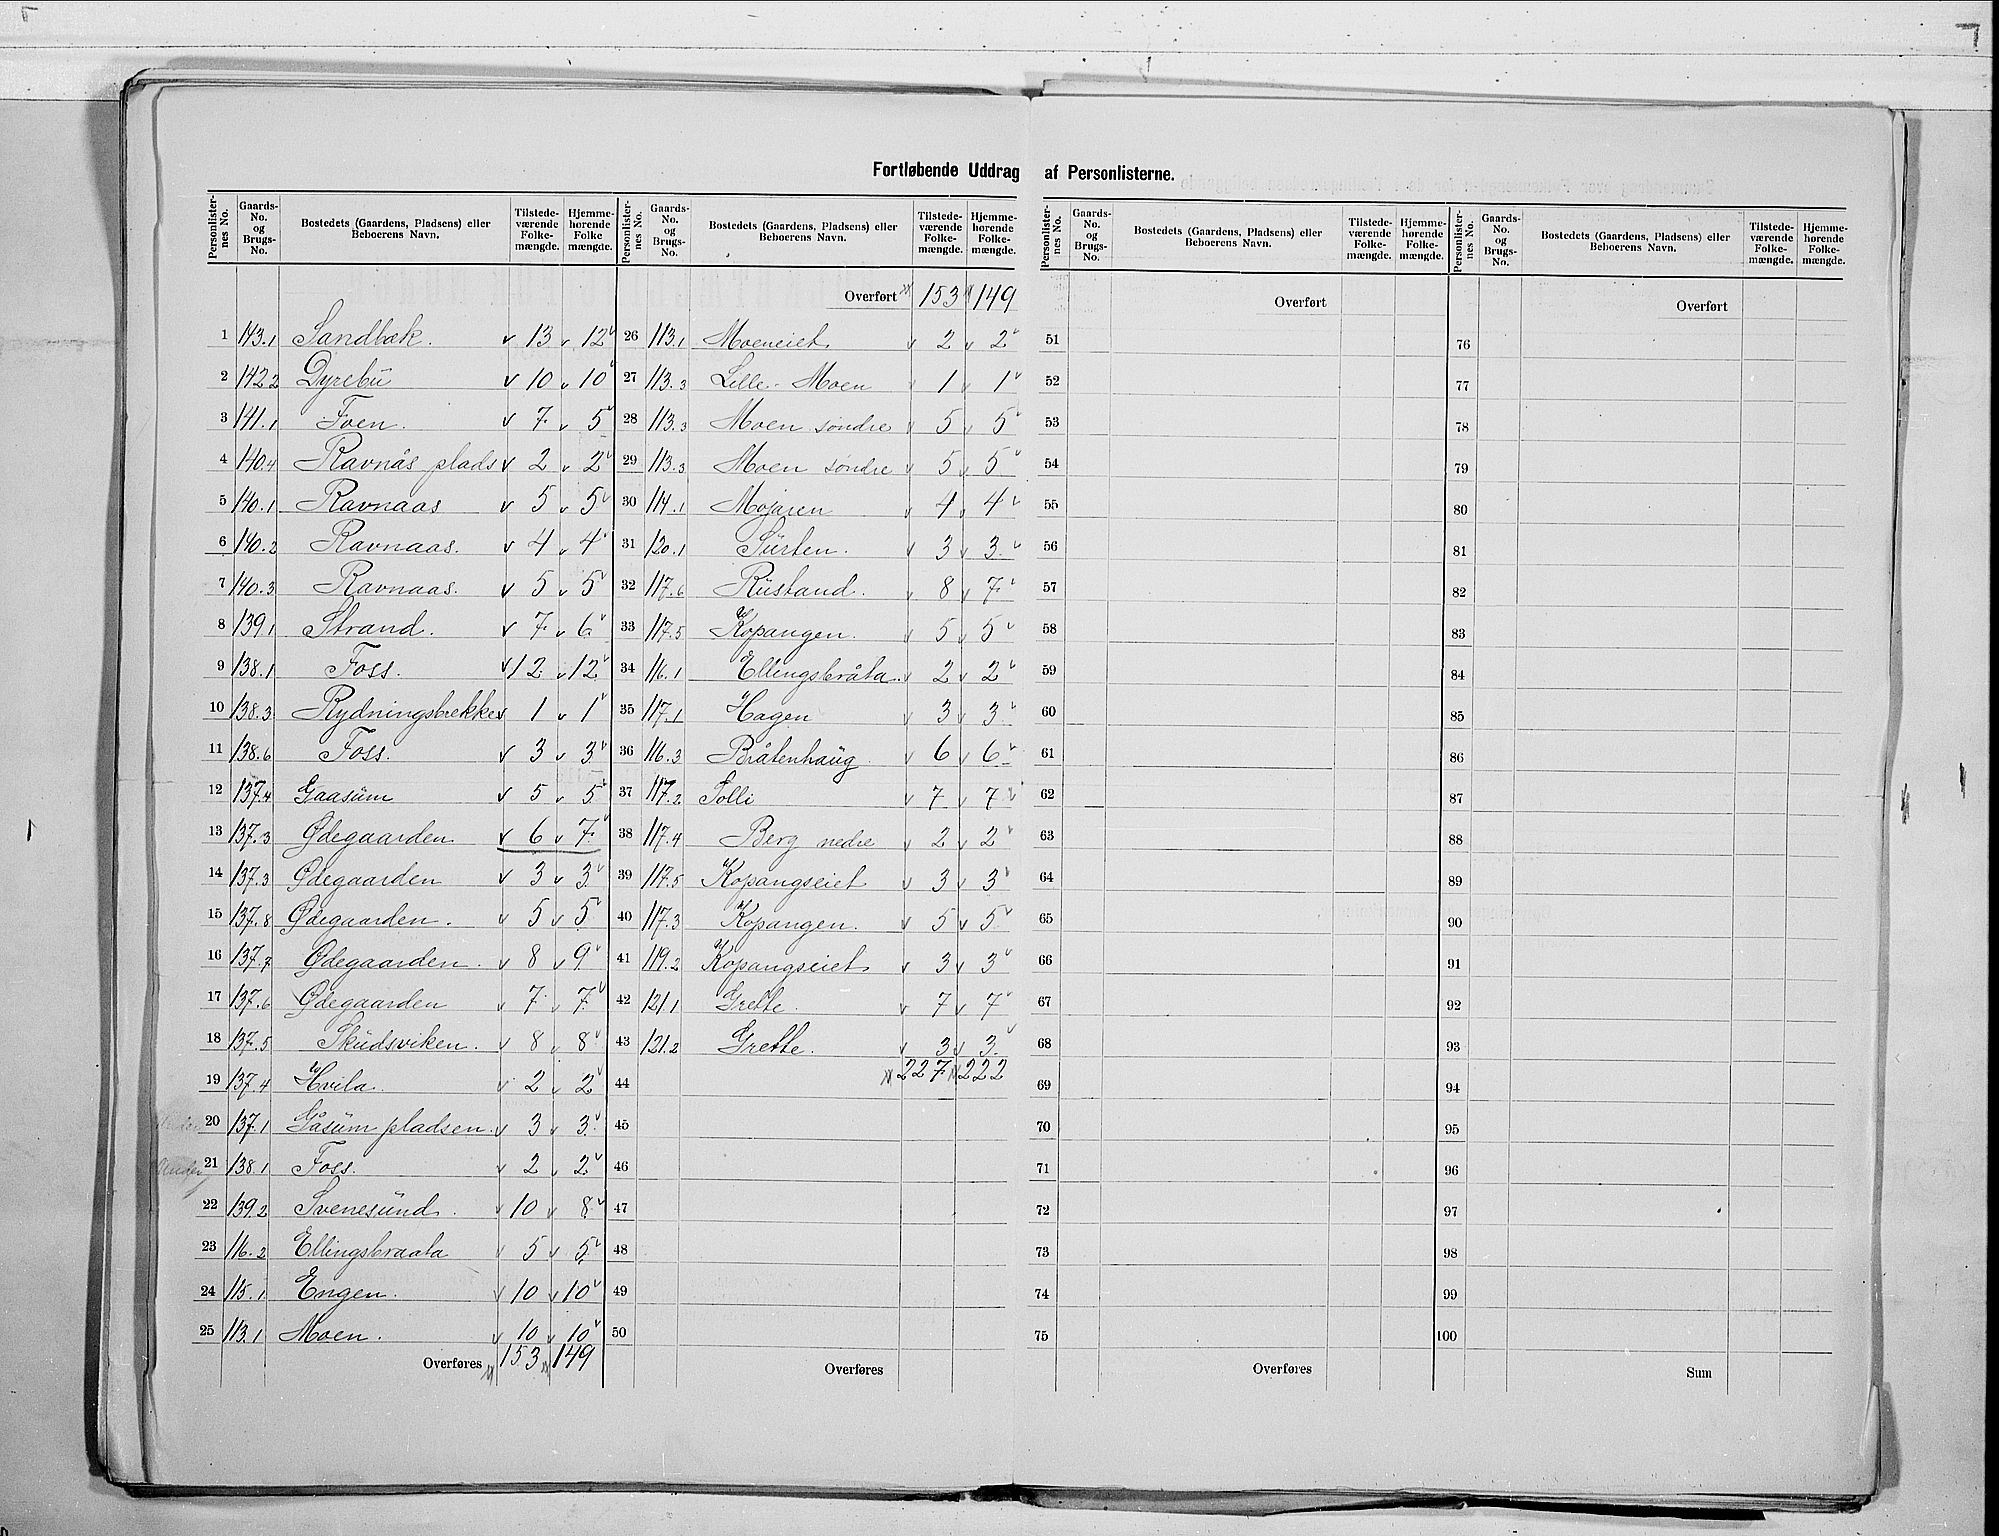 Fortløbende Uddrag af Personlisterne.
Personlister-nes No. Gaards-No. og Brugs-No. Bostedets (Gaardens, Pladsens) eller Beboerens Navn. Tilstede-værende Folke-mængde. Hjemme-hørende Folke mængde. Personlister-nes No. Gaards-No. og Brugs-No. Bostedets (Gaardens, Pladsens) eller Beboerens Navn. Tilstede-værende Folke-mængde. Hjemme-hørende Folke-mængde. Personlister-nes No. Gaards-No. og Brugs-No. Bostedets (Gaardens, Pladsens) eller Beboerens Navn. Tilstede-værende Folke-mængde. Hjemme-hørende Folke-mængde. Personlister-nes No. Gaards-No. og Brugs-No. Bostedets (Gaardens, Pladsens) eller Beboerens Navn. Tilstede-værende Folke-mængde. Hjemme-hørende Folke-mængde.
1 143.1 Sandbæk. v 13 v 12 v
2 142.2 Dyrebü v 10 v 10 v
3 141.1 Foen. v 7 v 5 v
4 140.4 Ravnås plads v 2 v 2 v
5 140.1 Ravnaas v 5 v 5 v
6 140.2 Ravnaas. v 4 v 4 v
7 140.3 Ravnaas. v 5 v 5 v
8 139.1 Strand. v 7 v 6 v
9 138.1 Foss. v 12 v 12 v
10 138.3 Rydningsbrekke v 1 v 1 v
11 138.6 Foss. v 3 v 3 v
12 137.4 Gaasüm v 5 v 5 v
13 137.3 Ødegaarden v 6 v 7 v
14 137.3 Ødegaarden v 3 v 3 v
15 137.8 Ødegaarden. v 5 v 5 v
16 137.7 Ødegaarden. v 8 v 9 v
17 137.6 Ødegaarden v 7 v 7 v
18 137.5 Sküdsviken. v 8 v 8 v
19 137.4 Hvila. v 2 v 2 v
20 137.1 Gåsüm pladsen. v 3 v 3 v
21 138.1 Foss. v 2 v 2 v
22 139.2 Svenesünd. v 10 v 8 v
23 116.2 Ellingsbraata v 5 v 5 v
24 115.1 Engen. v 10 v 10 v
25 113.1 Moen. v 10 v 10 v
Overføres 153 149
Overført 153 149
26 113.1 Moeneiet v 2 v 2 v
27 113.3 Lille-Moen v 1 v 1 v
28 113.3 Moen søndre v 5 v 5 v
29 113.3 Moen søndre v 5 v 5 v
30 114.1 Mojaren v 4 v 4 v
31 120.1 Sürten. v 3 v 3 v
32 117.6 Rüstand. v 8 v 7 v
33 117.5 Kopangen. v 5 v 5 v
34 116.1 Ellingsbråta. v 2 v 2 v
35 117.1 Hagen v 3 v 3 v
36 116.3 Bråtenhaüg. v 6 v 6 v
37 117.2 Solli v 7 v 7 v
38 117.4 Berg nedre v 2 v 2 v
39 117.5 Kopangseiet v 3 v 3 v
40 117.3 Kopangen. v 5 v 5 v
41 119.2 Kopangseiet v 3 v 3 v
42 121.1 Grette. v 7 v 7 v
43 121.2 Grette. v 3 v 3 v
44 227 222
45
46
47
48
49
50
Overføres
Overført
51
52
53
54
55
56
57
58
59
60
61
62
63
64
65
66
67
68
69
70
71
72
73
74
75
Overføres
Overført
76
77
78
79
80
81
82
83
84
85
86
87
88
89
90
91
92
93
94
95
96
97
98
99
100
Sum